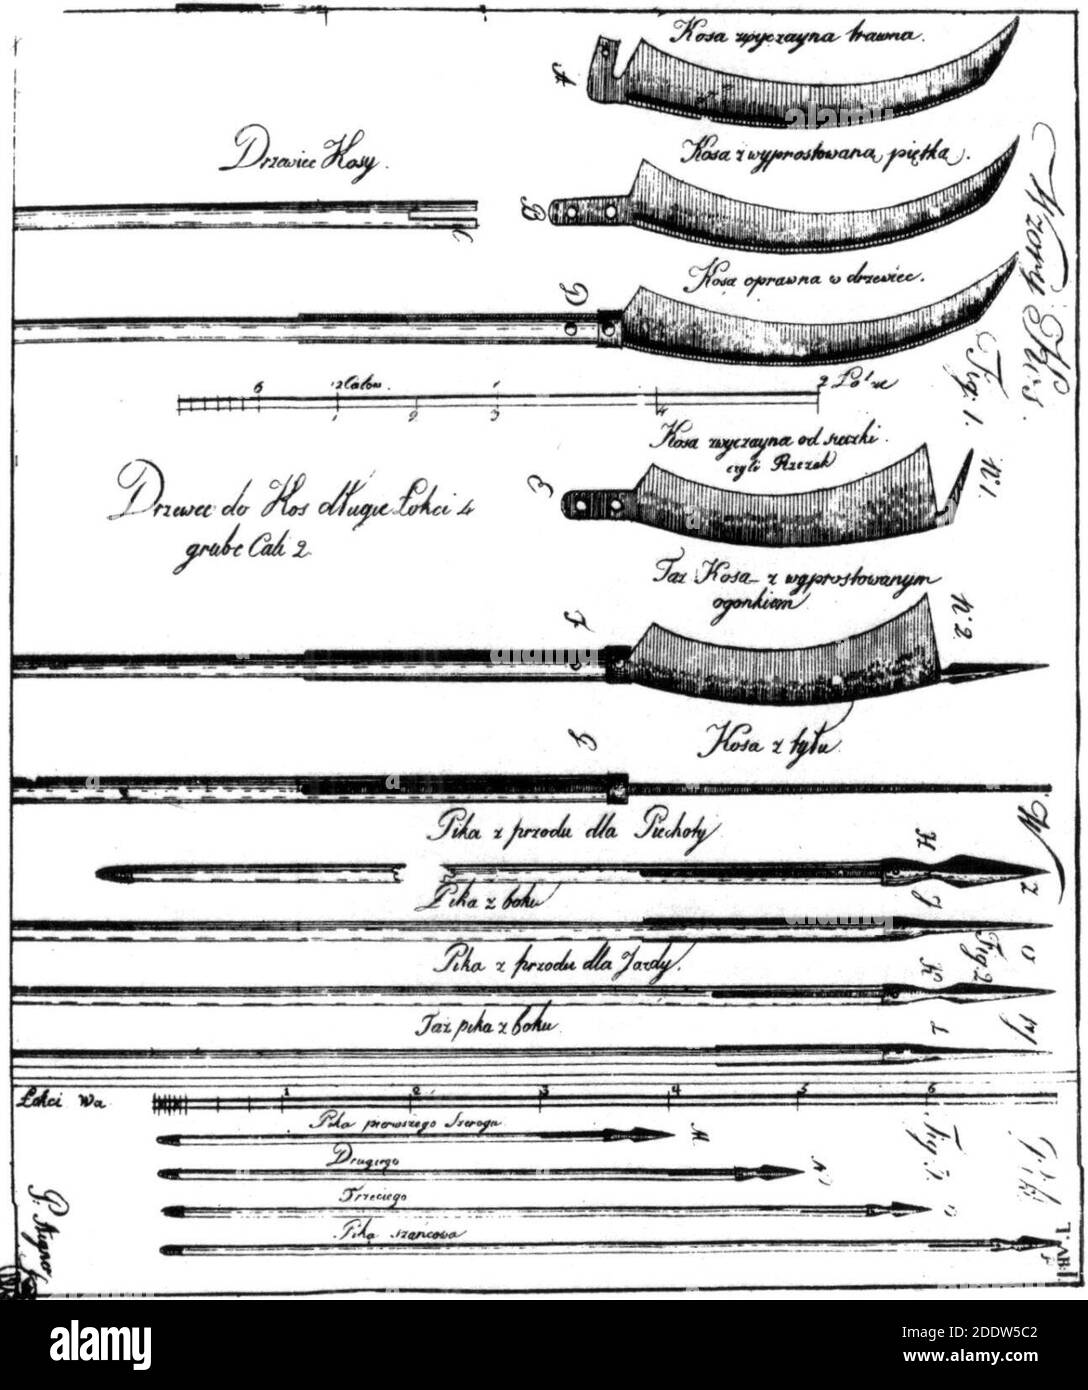 Kosa zwyczayna trawna.
A
Drzewice Kosy.
Kosa z wyprostowaną piętką.
B
C
Kosa oprawna w drzewiec.
D
Fig. 1.
6 12 Calow. 1 2
1 2 3 4
Kosa zwyczayna od sieczki
czyli Rzezak
N 1.
Drzewce do Kos długie Łokci 4
grube Cali 2
Taż Kosa z wyprostowanym
ogonkiem
N 2.
Kosa z tyłu.
Pika z przodu dla Piechoty
H
Pika z boku
Pika z przodu dla Jazdy.
K
Fig 2
Taż pika z boku.
L
Łokci Wa 1 2 3 4 5 6
Pika pierwszego Szeregu
M
Drugiego
N
Trzeciego
O
Pika szańcowa
P
Fig 3.
Wzory Kos
TAB: I.
alamy
Image ID: 2DDW5C2
www.alamy.com